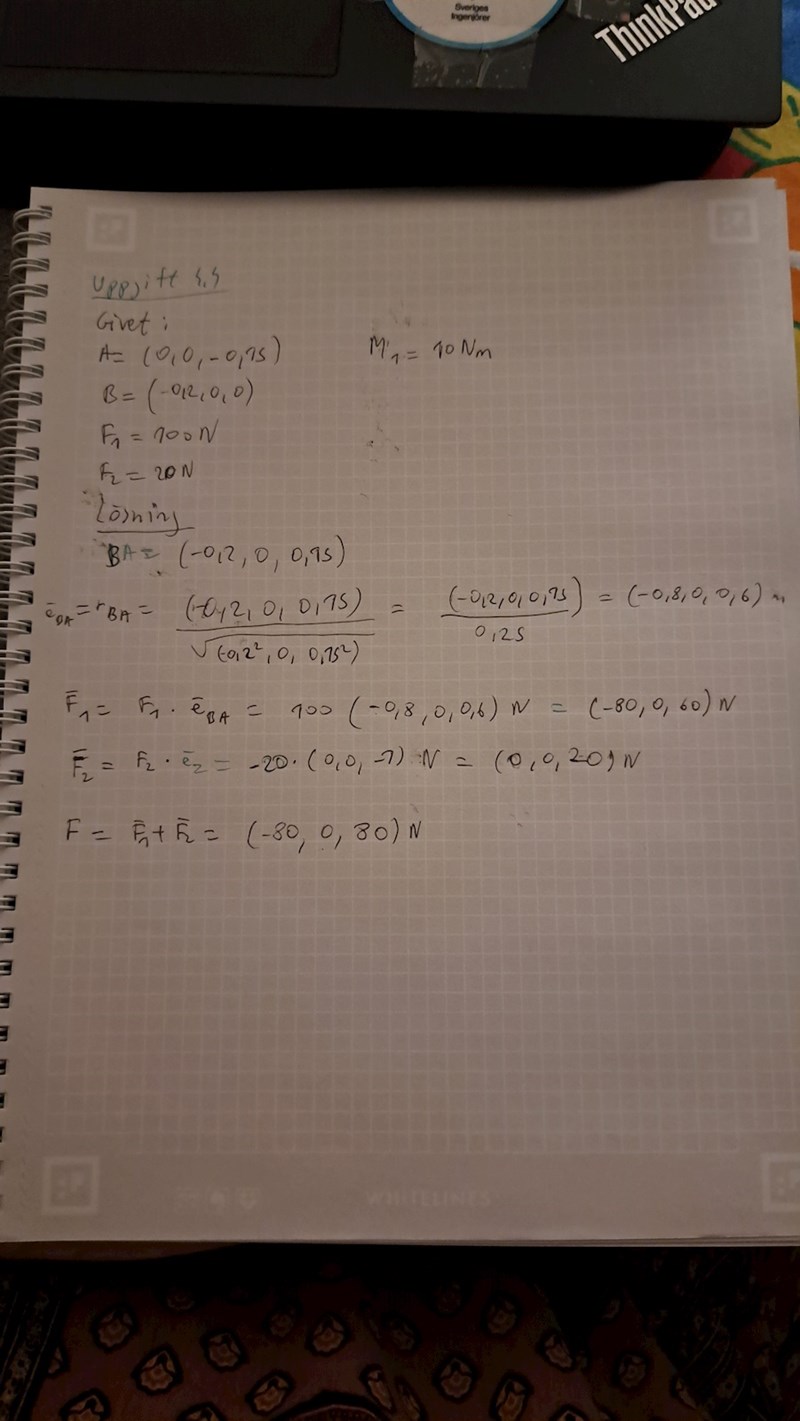 Sveriges
Ingenjörer
ThinkPad
Uppgift
Givet:
A= (0,0,-0,15) M₁ = 10 Nm
B= (-0,2,0,0)
F₁ = 100 N
F₂ = 20 N
Lösning
BA= (-0,2, 0, 0,15)
ē_BA = r_BA = (-0,2, 0, 0,15) / √(-0,2², 0, 0,15²) = (-0,2,0,0,15) / 0,25 = (-0,8,0,0,6) m
F̄₁ = F₁ · ē_BA = 100 (-0,8,0,0,6) N = (-80,0,60) N
F̄₂ = F₂ · ē₂ = -20·(0,0,-1) N = (0,0,20) N
F = F̄₁+F̄₂ = (-80, 0, 80) N
WHITELINES